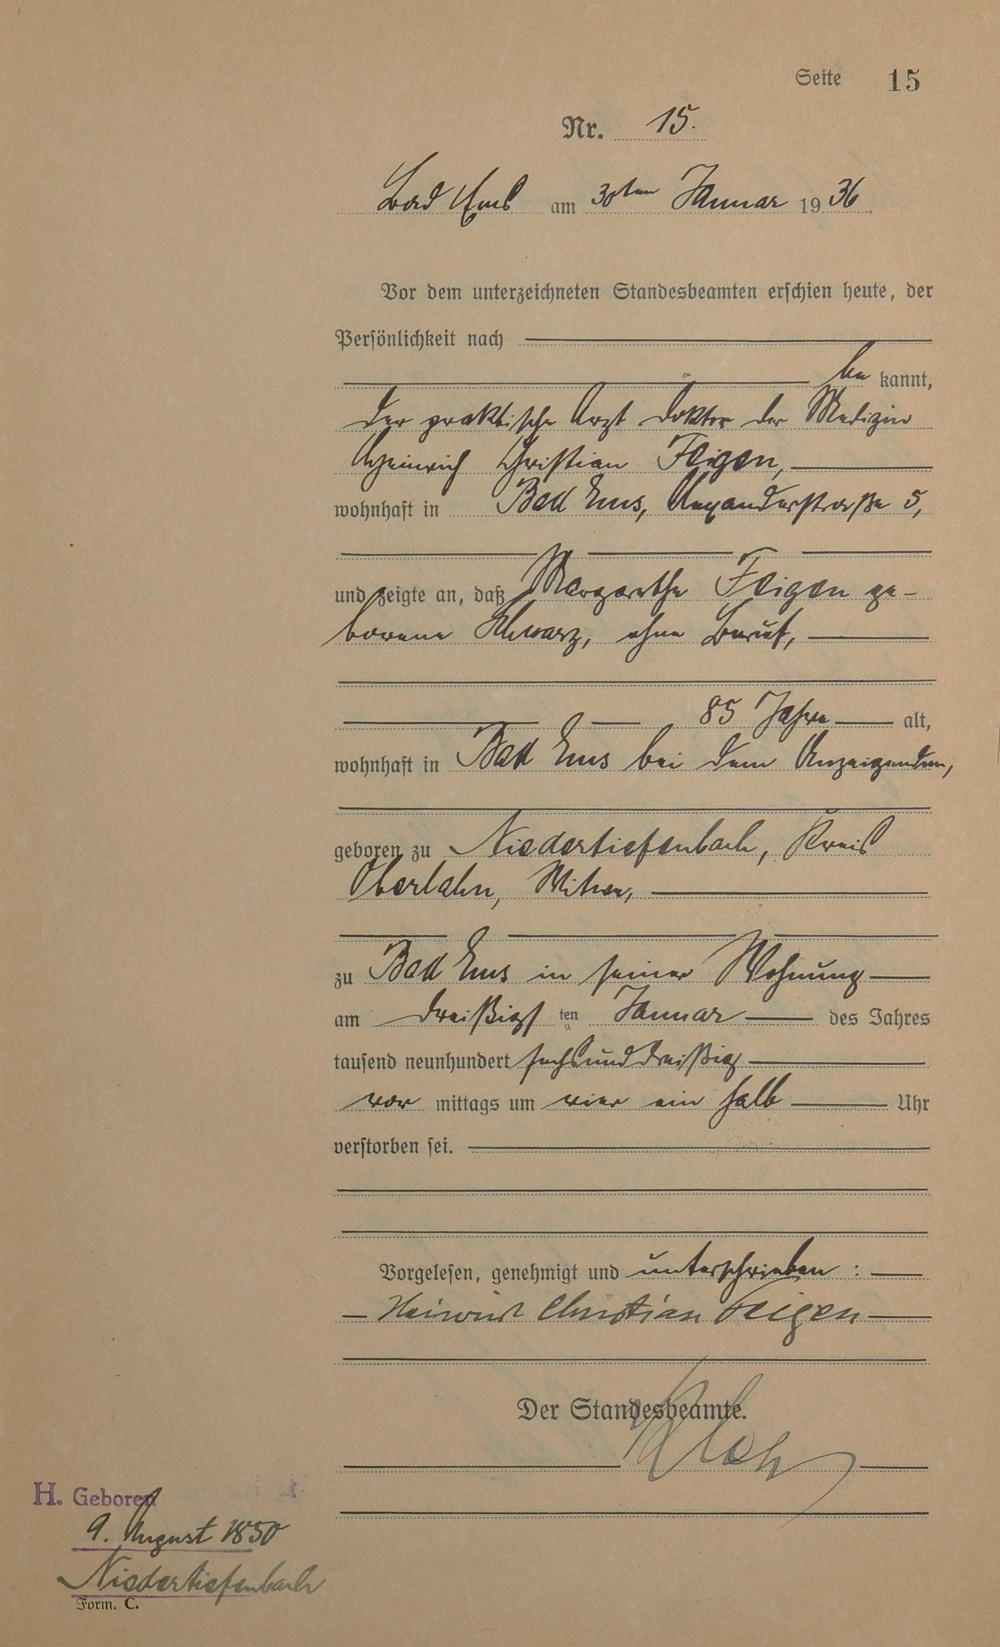 Seite 15
Nr. 15.
Bad Ems am 30ten Januar 1936.
Vor dem unterzeichneten Standesbeamten erschien heute, der
Persönlichkeit nach
be kannt,
der praktische Arzt Doktor der Medizin
Heinrich Christian Feigen,
wohnhaft in Bad Ems, Alexanderstraße 5,
und zeigte an, daß Margarethe Feigen ge-
borene Schwarz, ohne Beruf,
85 Jahre alt,
wohnhaft in Bad Ems bei dem Anzeigenden,
geboren zu Niedertiefenbach, Kreis
Oberlahn, Witwe,
zu Bad Ems in seiner Wohnung
am dreißigsten Januar des Jahres
tausend neunhundert sechsunddreißig
vor mittags um vier ein halb Uhr
verstorben sei.
Vorgelesen, genehmigt und unterschrieben:
Heinrich Christian Feigen
Der Standesbeamte.
H. Geboren
9. August 1850
Niedertiefenbach
Form. C.